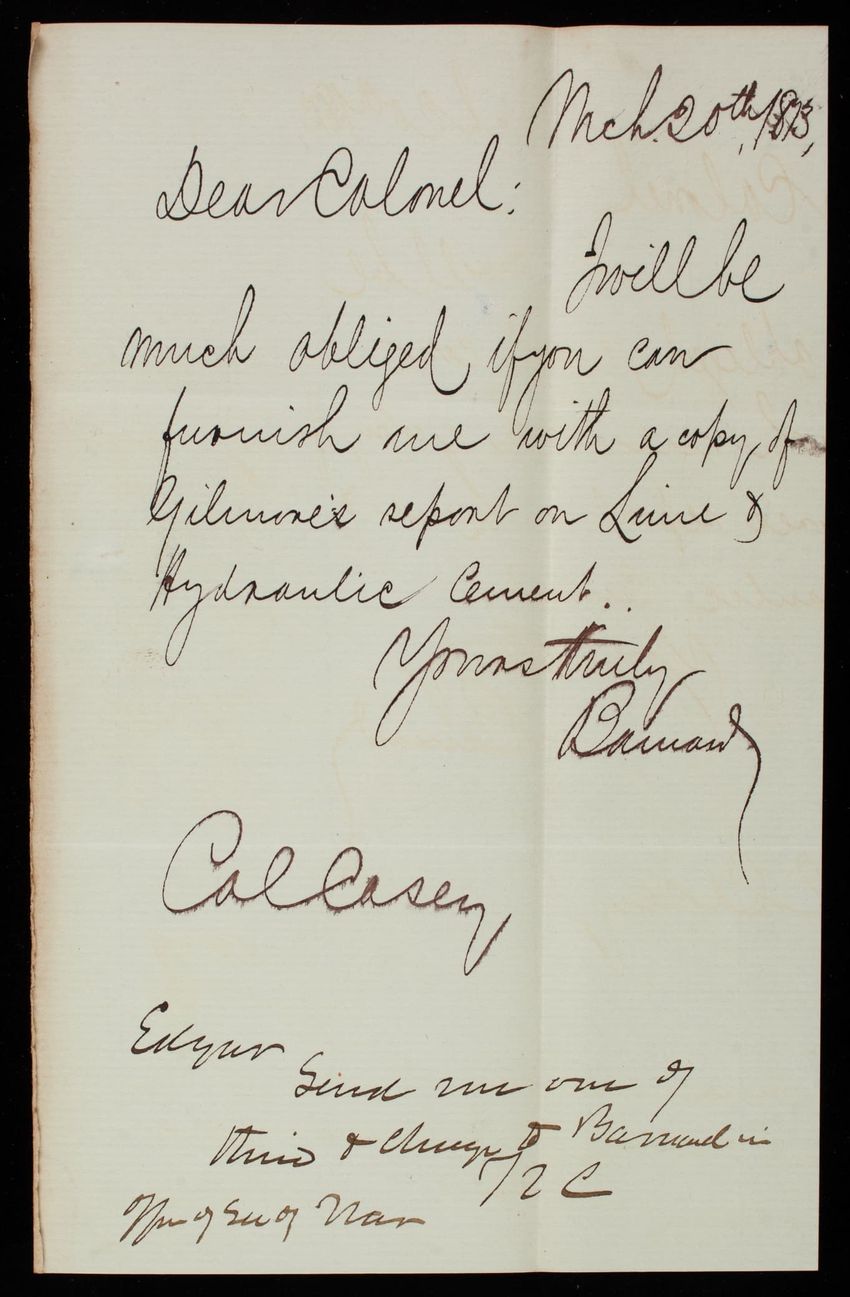 Mch. 20th, 1873,
Dear Colonel:
I will be
much obliged if you can
furnish me with a copy of
Gilmore's report on Lime &
Hydraulic Cement..
Yours truly
Barnard
Col Casey
Edgar
Send me one of
this & charge to Barnard in
of Sec of War